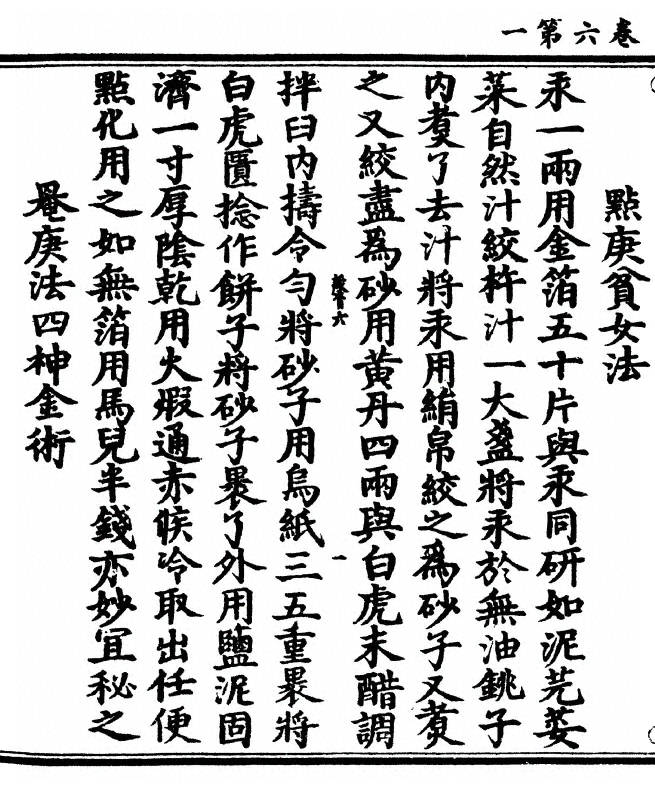 卷六第一
點庚貧女法
汞一兩用金箔五十片與汞同研如泥芫荽
菜自然汁絞杵汁一大盞將汞於無油銚子
内煑了去汁將汞用絹帛絞之爲砂子又煑
之又絞盡爲砂用黄丹四兩與白虎末醋調
六
一
拌臼内擣令匀將砂子用烏紙三五重褁將
白虎匱捻作餅子將砂子褁了外用鹽泥固
濟一寸厚陰乾用火煆通赤候冷取出任便
點化用之如無箔用馬兒半錢亦妙冝秘之
庚法四神金術